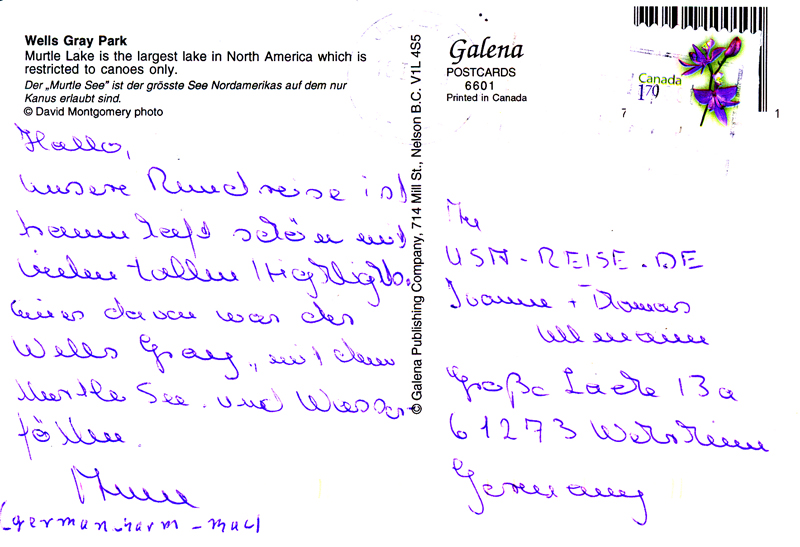 Wells Gray Park
Murtle Lake is the largest lake in North America which is
restricted to canoes only.
Der „Murtle See" ist der grösste See Nordamerikas auf dem nur
Kanus erlaubt sind.
© David Montgomery photo
Hallo,
unsere Rundreise ist
traumhaft schön mit
vielen tollen Highlights.
Eines davon war der
Wells Gray, mit dem
Murtle See und Wasser-
fällen.
(german-narm-mac)
© Galena Publishing Company, 714 Mill St., Nelson B.C. V1L 4S5
Galena
POSTCARDS
6601
Printed in Canada
Canada
170
7
1
The
USA-REISE.DE
Ivonne + Thomas
Ullmann
Große Lache 13a
61273 Wehrheim
Germany